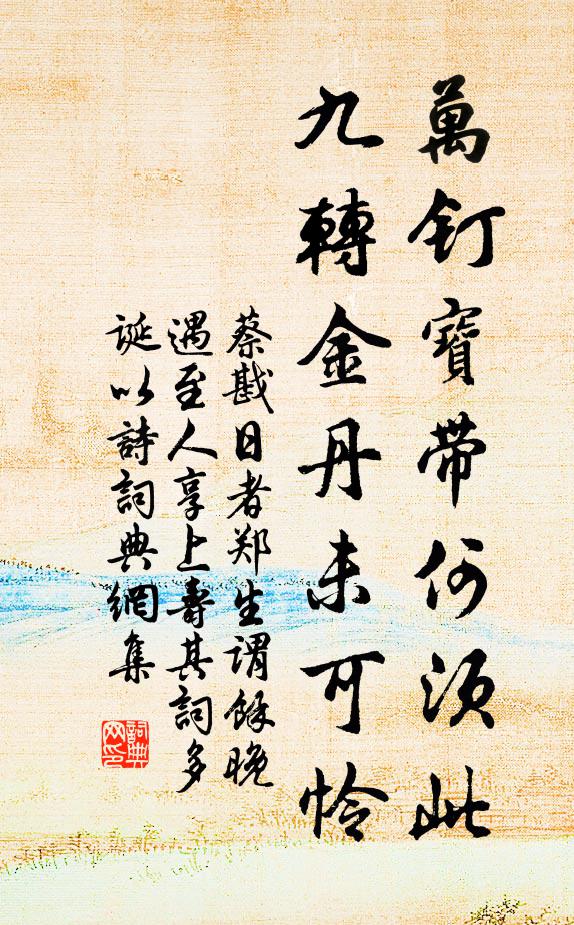 萬釘寶帶何須此
九轉金丹未可怜
蔡戡日者郑生谓馀晚
遇至人享上壽其詞多
诞以詩詞典網集
詞典
网印